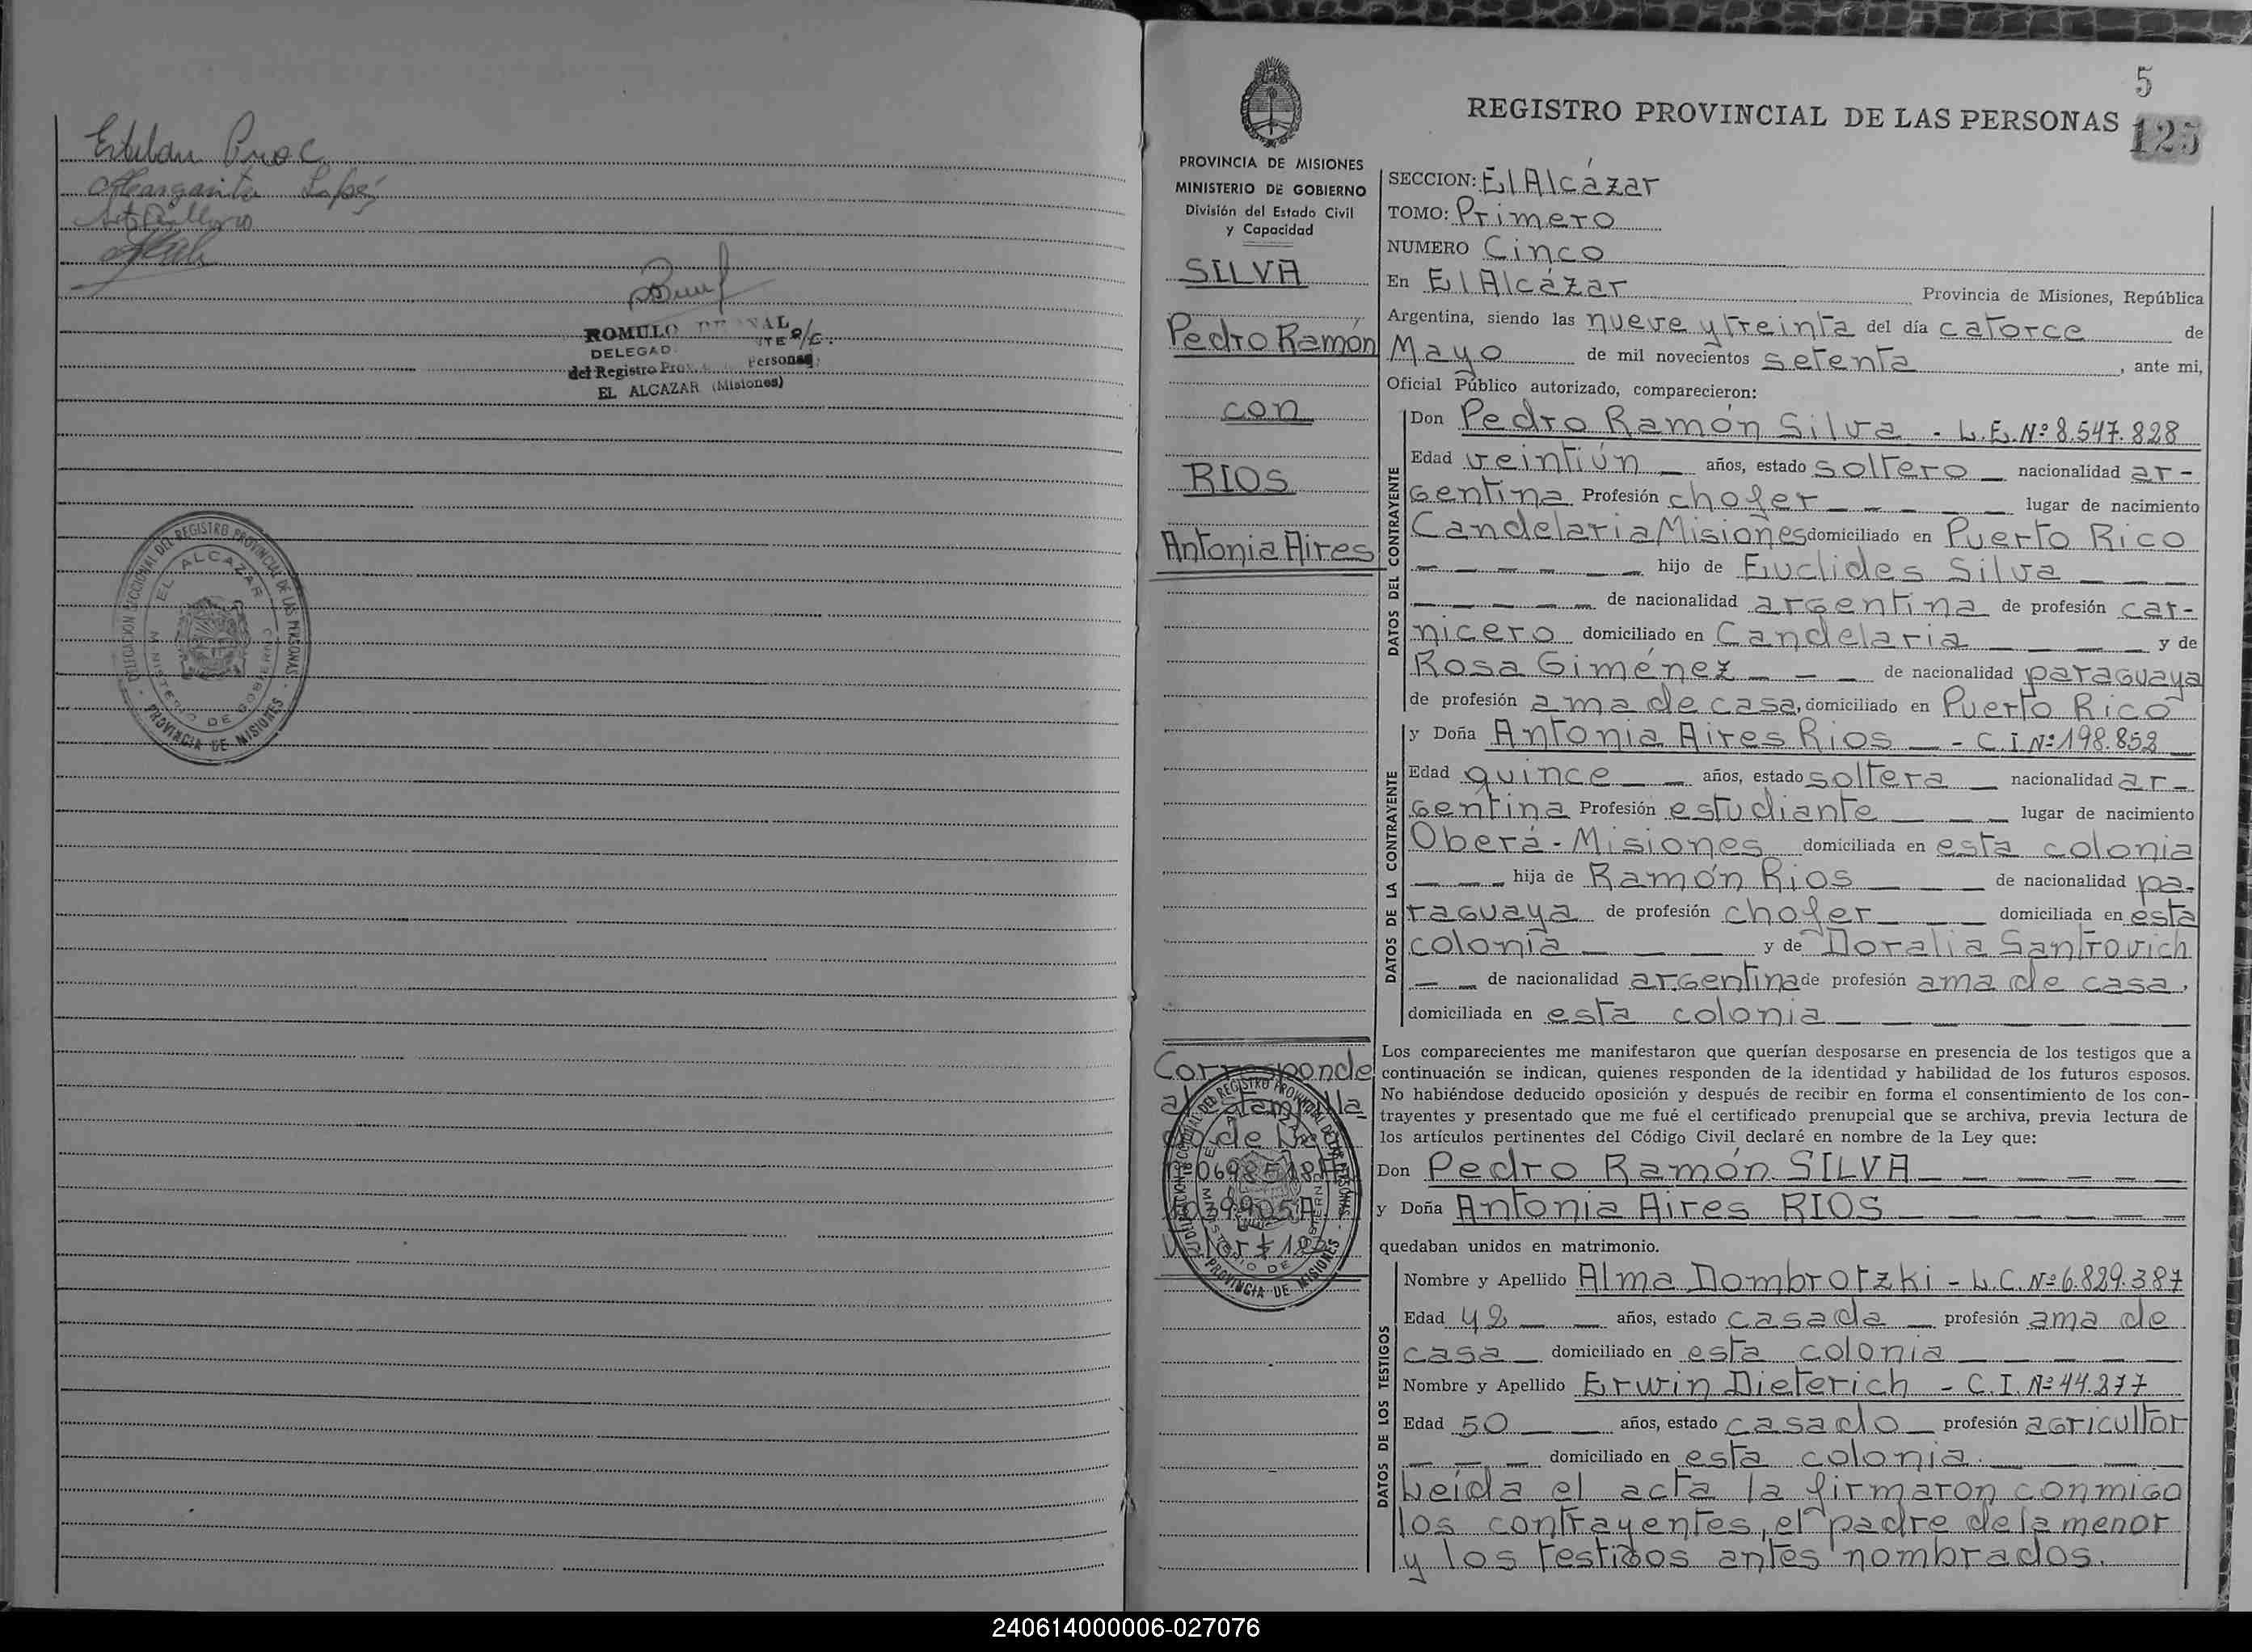 Esteban
Margarita López
ROMULO
DELEGAD
del Registro Personas
EL ALCAZAR (Misiones)
DELEGACION SECCIONAL DEL REGISTRO PROVINCIAL DE LAS PERSONAS
EL ALCAZAR
MINISTERIO DE GOBIERNO
PROVINCIA DE MISIONES
5
REGISTRO PROVINCIAL DE LAS PERSONAS
125
PROVINCIA DE MISIONES
MINISTERIO DE GOBIERNO
División del Estado Civil
y Capacidad
SILVA
Pedro Ramón
con
RIOS
Antonia Aires
Corresponde
al estampilla
do de
valor $
SECCION: El Alcázar
TOMO: Primero
NUMERO Cinco
En El Alcázar Provincia de Misiones, República
Argentina, siendo las nueve y treinta del día catorce de
Mayo de mil novecientos setenta, ante mi,
Oficial Público autorizado, comparecieron:
DATOS DEL CONTRAYENTE
Don Pedro Ramón Silva - L.E. Nº 8.547.828
Edad veintiún años, estado soltero nacionalidad ar-
gentina Profesión chofer lugar de nacimiento
Candelaria Misiones domiciliado en Puerto Rico
hijo de Euclides Silva
de nacionalidad argentina de profesión car-
nicero domiciliado en Candelaria y de
Rosa Giménez de nacionalidad paraguaya
de profesión ama de casa, domiciliado en Puerto Rico
DATOS DE LA CONTRAYENTE
y Doña Antonia Aires Rios - C.I Nº 198.852
Edad quince años, estado soltera nacionalidad ar-
gentina Profesión estudiante lugar de nacimiento
Oberá - Misiones domiciliada en esta colonia
hija de Ramón Rios de nacionalidad pa-
raguaya de profesión chofer domiciliada en esta
colonia y de Doralia Santrovich
de nacionalidad argentina de profesión ama de casa,
domiciliada en esta colonia
Los comparecientes me manifestaron que querían desposarse en presencia de los testigos que a
continuación se indican, quienes responden de la identidad y habilidad de los futuros esposos.
No habiéndose deducido oposición y después de recibir en forma el consentimiento de los con-
trayentes y presentado que me fué el certificado prenupcial que se archiva, previa lectura de
los artículos pertinentes del Código Civil declaré en nombre de la Ley que:
Don Pedro Ramón SILVA
y Doña Antonia Aires RIOS
quedaban unidos en matrimonio.
DATOS DE LOS TESTIGOS
Nombre y Apellido Alma Dombrotzki - L.C. Nº 6.829.387
Edad 42 años, estado casada profesión ama de
casa domiciliado en esta colonia
Nombre y Apellido Erwin Dieterich - C.I. Nº 44.277
Edad 50 años, estado casado profesión agricultor
domiciliado en esta colonia.
Leída el acta la firmaron conmigo
los contrayentes, el padre de la menor
y los testigos antes nombrados.
240614000006-027076